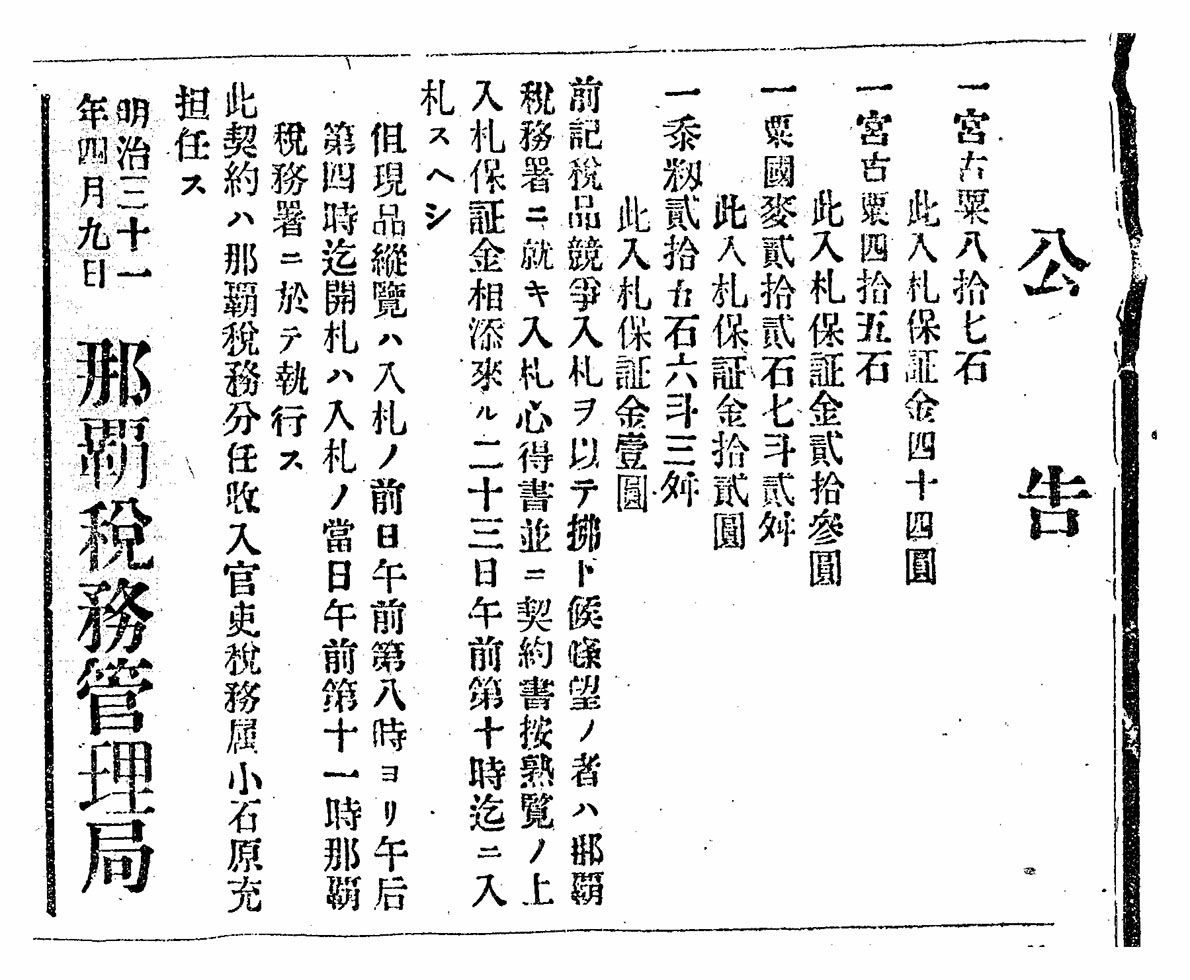 公告
一宮古粟八拾七石
此入札保証金四十四圓
一宮古粟四拾五石
此入札保証金貳拾參圓
一粟國麥貳拾貳石七斗貳舛
此入札保証金拾貳圓
一黍籾貳拾五石六斗三舛
此入札保証金壹圓
前記稅品競爭入札ヲ以テ拂下候條望ノ者ハ那覇
稅務署ニ就キ入札心得書並ニ契約書按熟覽ノ上
入札保証金相添來ル二十三日午前第十時迄ニ入
札スヘシ
但現品縱覽ハ入札ノ前日午前第八時ヨリ午后
第四時迄開札ハ入札ノ當日午前第十一時那覇
稅務署ニ於テ執行ス
此契約ハ那覇稅務分任收入官吏稅務属小石原充
担任ス
明治三十一
年四月九日
那覇稅務管理局